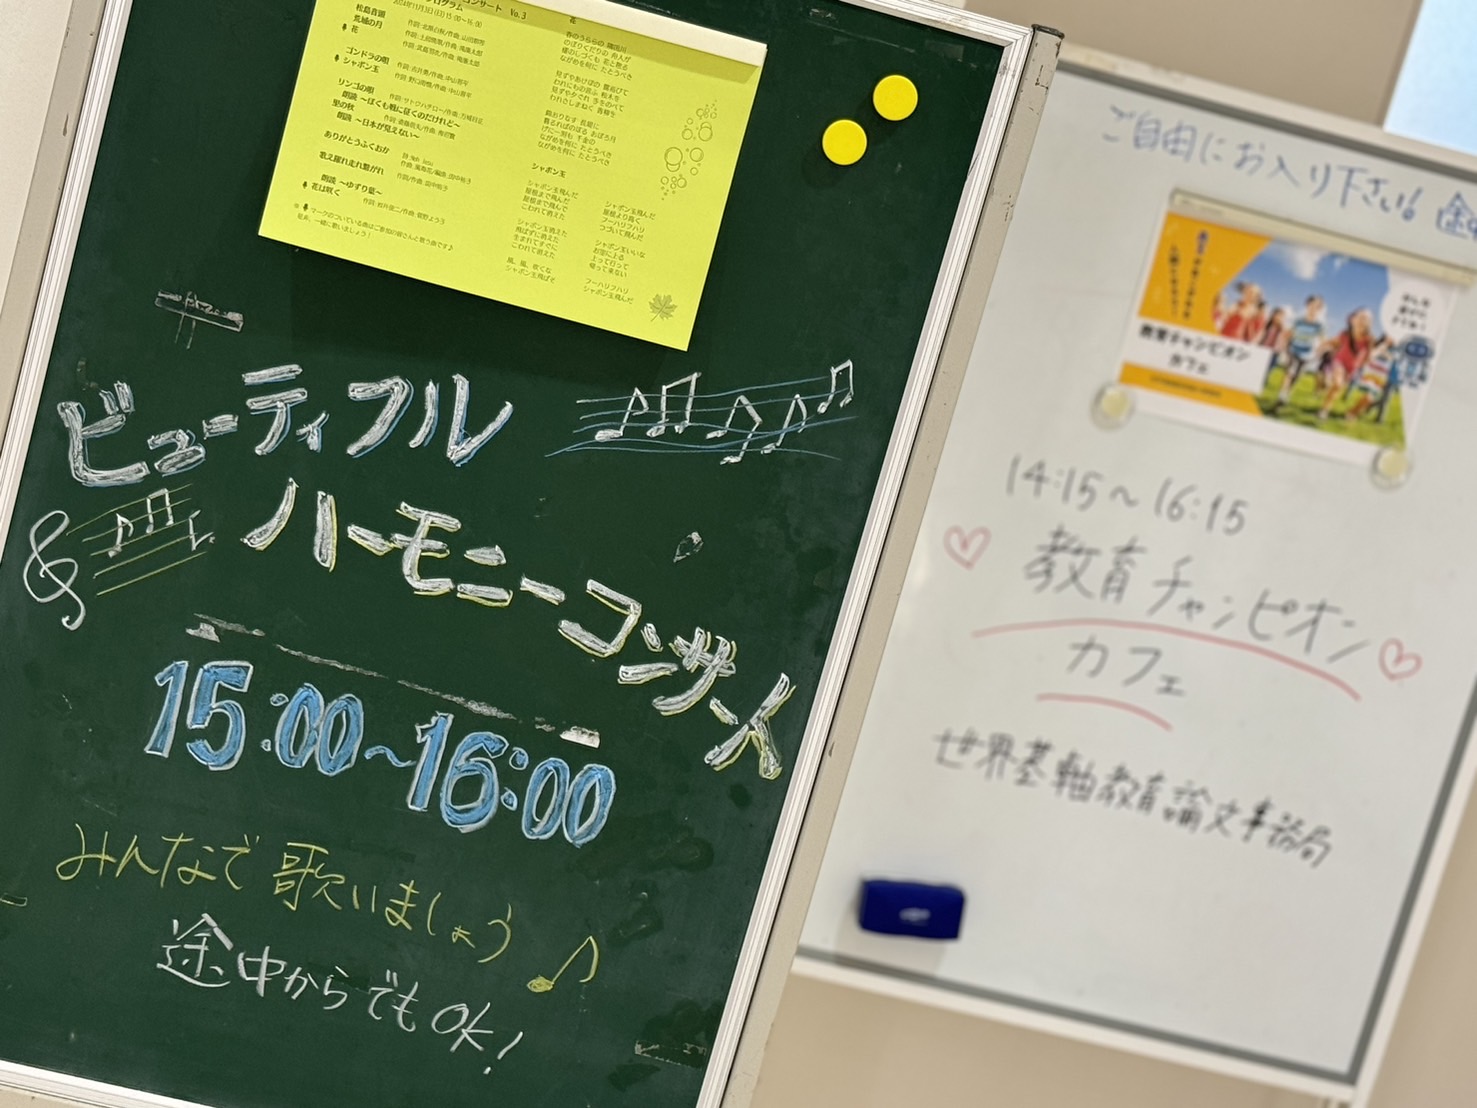 コンサート Vo.3
プログラム
2024年11月3日(日)15:00～16:00
松島音頭
作詞:北原白秋/作曲:山田耕筰
荒城の月
作詞:土井晩翠/作曲:滝廉太郎
花
作詞:武島羽衣/作曲:滝廉太郎
ゴンドラの唄
作詞:吉井勇/作曲:中山晋平
シャボン玉
作詞:野口雨情/作曲:中山晋平
リンゴの唄
作詞:サトウハチロー/作曲:万城目正
朗読 ～ぼくも戦に征くのだけれど～
里の秋
朗読 ～日本が見えない～
ありがとうふくおか
歌え踊れ走れ繋がれ
朗読 ～ゆずり葉～
花は咲く
作詞:岩井俊二/作曲:菅野よう子
※マークのついている曲はご参加の皆さんと歌う曲です♪
是非、一緒に歌いましょう！
花
春のうららの 隅田川
のぼりくだりの 舟人が
櫂のしづくも 花と散る
ながめを何に たとうべき
見ずやあけぼの 露浴びて
われにもの言ふ 桜木を
見ずや夕ぐれ 手をのべて
われさしまねく 青柳を
錦おりなす 長堤に
暮るればのぼる おぼろ月
げに一刻も 千金の
ながめを何に たとうべき
シャボン玉
シャボン玉飛んだ
屋根まで飛んだ
屋根まで飛んで
こわれて消えた
シャボン玉消えた
飛ばずに消えた
生まれてすぐに
こわれて消えた
風、風、吹くな
シャボン玉飛ばそ
シャボン玉飛んだ
屋根より高く
フーハリフハリ
つづいて飛んだ
シャボン玉いいな
お空に上る
上って行って
帰って来ない
フーハリフハリ
シャボン玉飛んだ
ビューティフル
ハーモニーコンサート
15:00～16:00
みんなで歌いましょう
途中からでもOK!
ご自由にお入り下さい!
教育チャンピオン
カフェ
14:15～16:15
教育チャンピオン
カフェ
世界基軸教育論文事務局